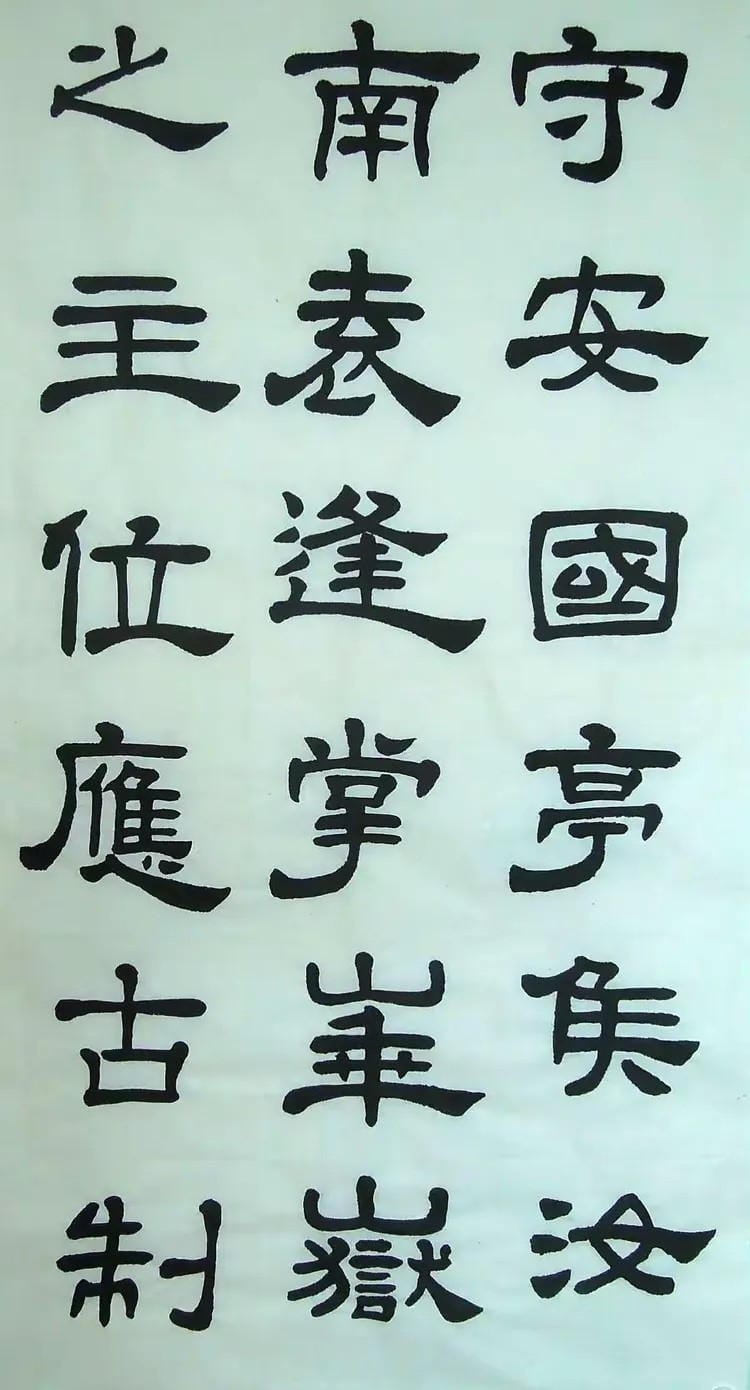 守安國亭矦汝
南袁逢掌崋嶽
之主位應古制